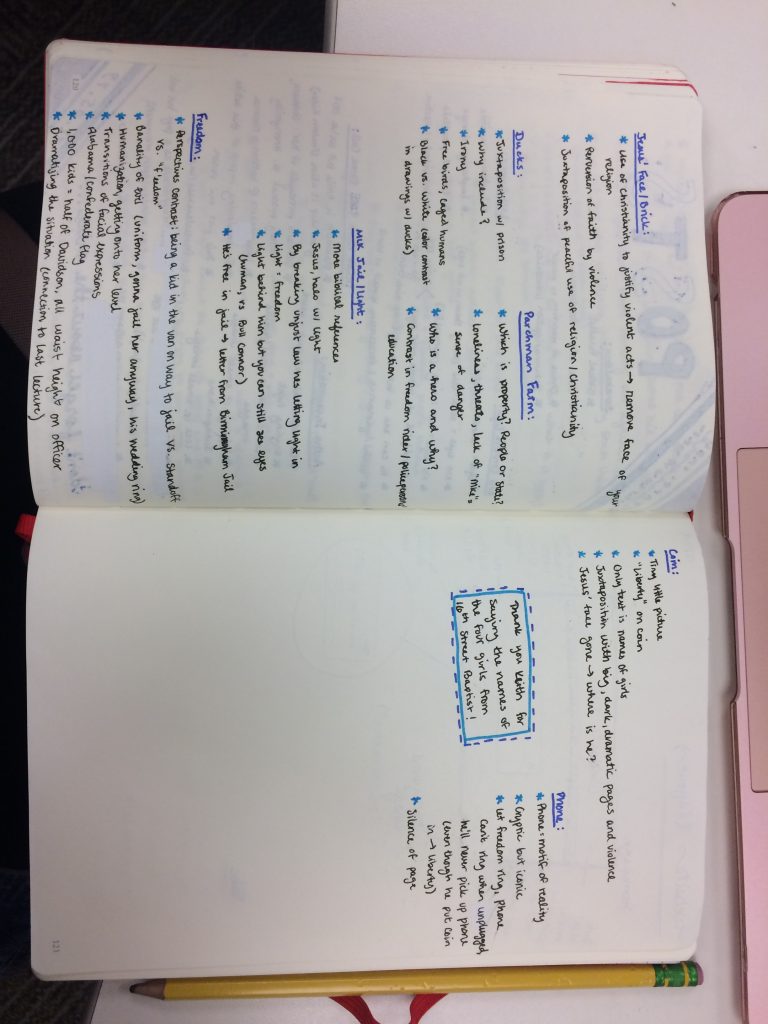 Jesus' Face/Brick:
* Use of Christianity to justify violent acts → remove face of your
religion
* Perversion of faith by violence
* Juxtaposition of peaceful use of religion/Christianity
Ducks:
* Juxtaposition w/ prison
* Why include?
* Irony
* Free birds, caged humans
* Black vs. White (color contrast
in drawings w/ ducks)
Parchman Farm:
* Which is property? People or State?
* Loneliness, threats, lack of "mike" =
sense of danger
* Who is a hero and why?
* Contrast in freedom rider/policeperson
education
MLK Jail/Light:
* More biblical references
* Jesus, halo w/ light
* By breaking unjust law he's letting light in
* Light = freedom
* Light behind him but you can still see eyes
(human, vs Bull Connor)
* He's free in jail → Letter from Birmingham Jail
Freedom:
* Perspectives contrast: being a kid in the van on way to jail vs. standoff
vs. "freedom"
* Banality of evil (uniform, gonna jail her anyway, his wedding ring)
* Humanization, getting onto her level
* Transitions of facial expressions
* Alabama/Confederate flag
* 1,000 kids = half of Davidson, all waist height on officer
* Dramatizing the situation (connection to last lecture)
120
Coin:
* Tiny little picture
* "Liberty" on coin
* Only text is names of girls
* Juxtaposition with big, dark, dramatic pages and violence
* Jesus' face gone → where is he?
Thank you Keith for
saying the names of
the four girls from
16th Street Baptist!
Phone:
* Phone = motif of reality
* Cryptic but iconic
* Let freedom ring, phone
can't ring when unplugged,
he'll never pick up phone
(even though he put coin
in → liberty)
* Silence of page
121